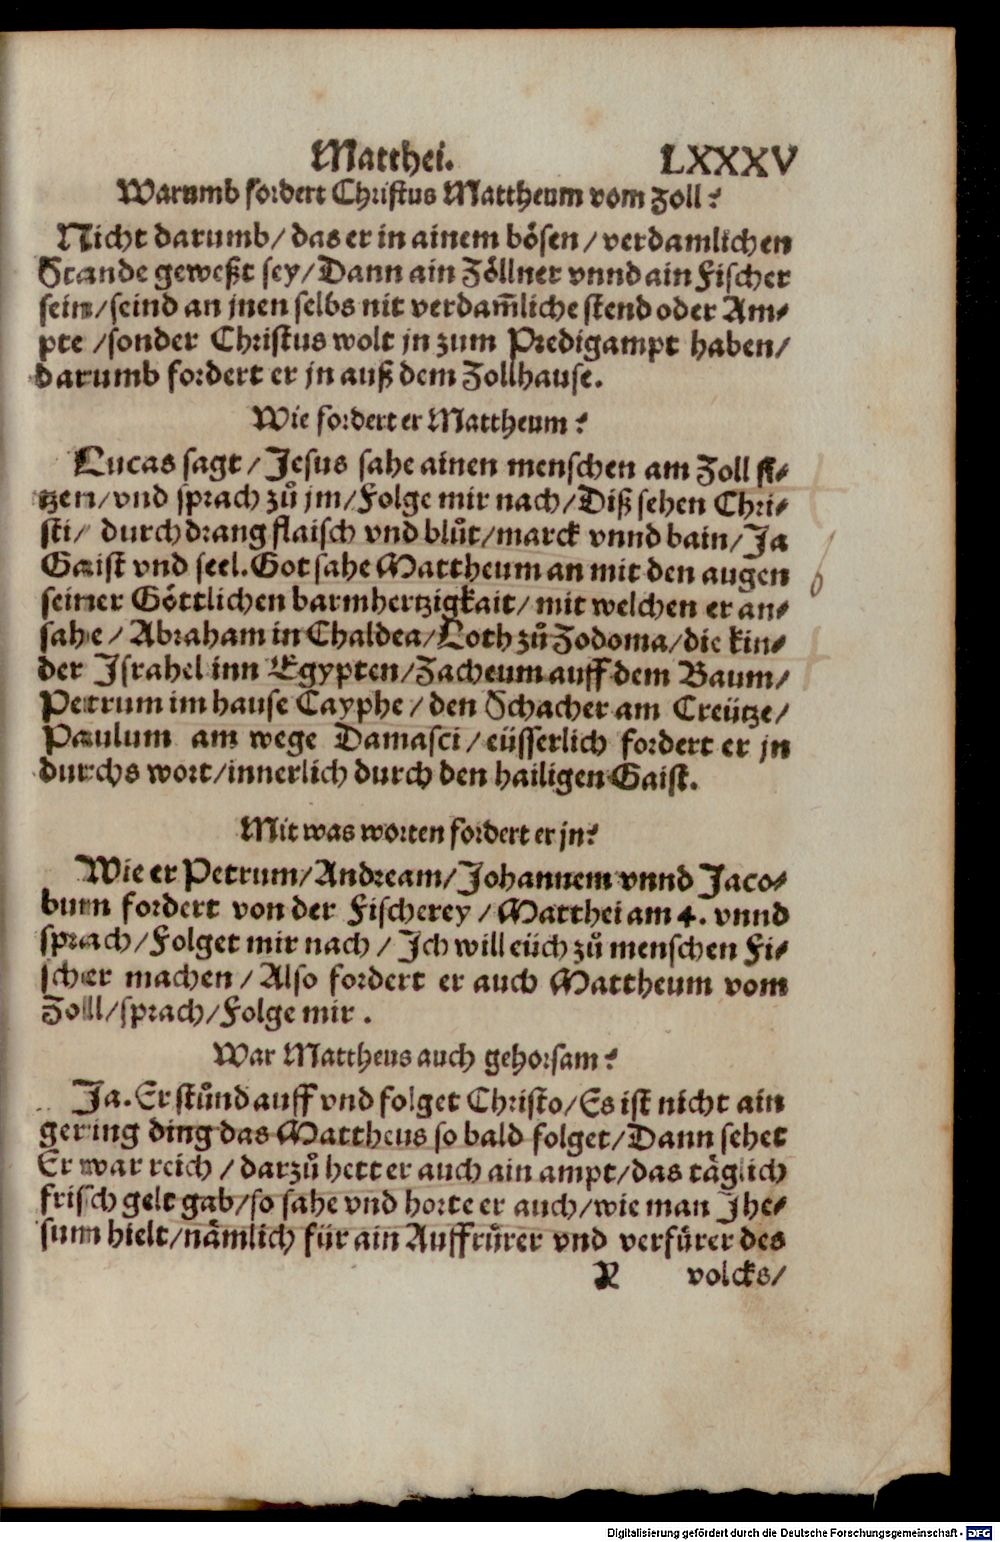 Matthei. LXXXV
Warumb fordert Christus Mattheum vom zoll?
Nicht darumb/ das er in ainem bösen/ verdamlichen
Stande geweßt sey/ Dann ain Zöllner vnnd ain Fischer
sein/ seind an jnen selbs nit verdam̃liche stend oder Am-
pte /sonder Christus wolt jn zum Predigampt haben/
darumb fordert er jn auß dem Zollhause.
Wie fordert er Mattheum?
Lucas sagt/ Jesus sahe ainen menschen am Zoll si-
tzen/ vnd sprach zů jm/ Folge mir nach/ Diß sehen Chri-
sti/ durchdrang flaisch vnd blůt/ marck vnnd bain/ Ja
Gaist vnd seel. Got sahe Mattheum an mit den augen
seiner Göttlichen barmhertzigkait/ mit welchen er an-
sahe/ Abraham in Chaldea/ Loth zů Zodoma/ die kin-
der Israhel inn Egypten/ Zacheum auff dem Baum/
Petrum im hause Cayphe/ den Schacher am Creütze/
Paulum am wege Damasci/ eüsserlich fordert er jn
durchs wort/ innerlich durch den hailigen Gaist.
Mit was worten fordert er jn?
Wie er Petrum/ Andream/ Johannem vnnd Jaco-
bum fordert von der Fischerey/ Matthei am 4. vnnd
sprach/ Folget mir nach/ Ich will eüch zů menschen Fi-
scher machen/ Also fordert er auch Mattheum vom
Zoll/ sprach/ Folge mir.
War Mattheus auch gehorsam?
Ja. Er stůnd auff vnd folget Christo/ Es ist nicht ain
gering ding das Mattheus so bald folget/ Dann sehet
Er war reich/ darzů hett er auch ain ampt/ das täglich
frisch gelt gab/ so sahe vnd horte er auch/ wie man Jhe-
sum hielt/ nämlich für ain Auffrůrer vnd verfürer des
R volcks/
Digitalisierung gefördert durch die Deutsche Forschungsgemeinschaft - DFG